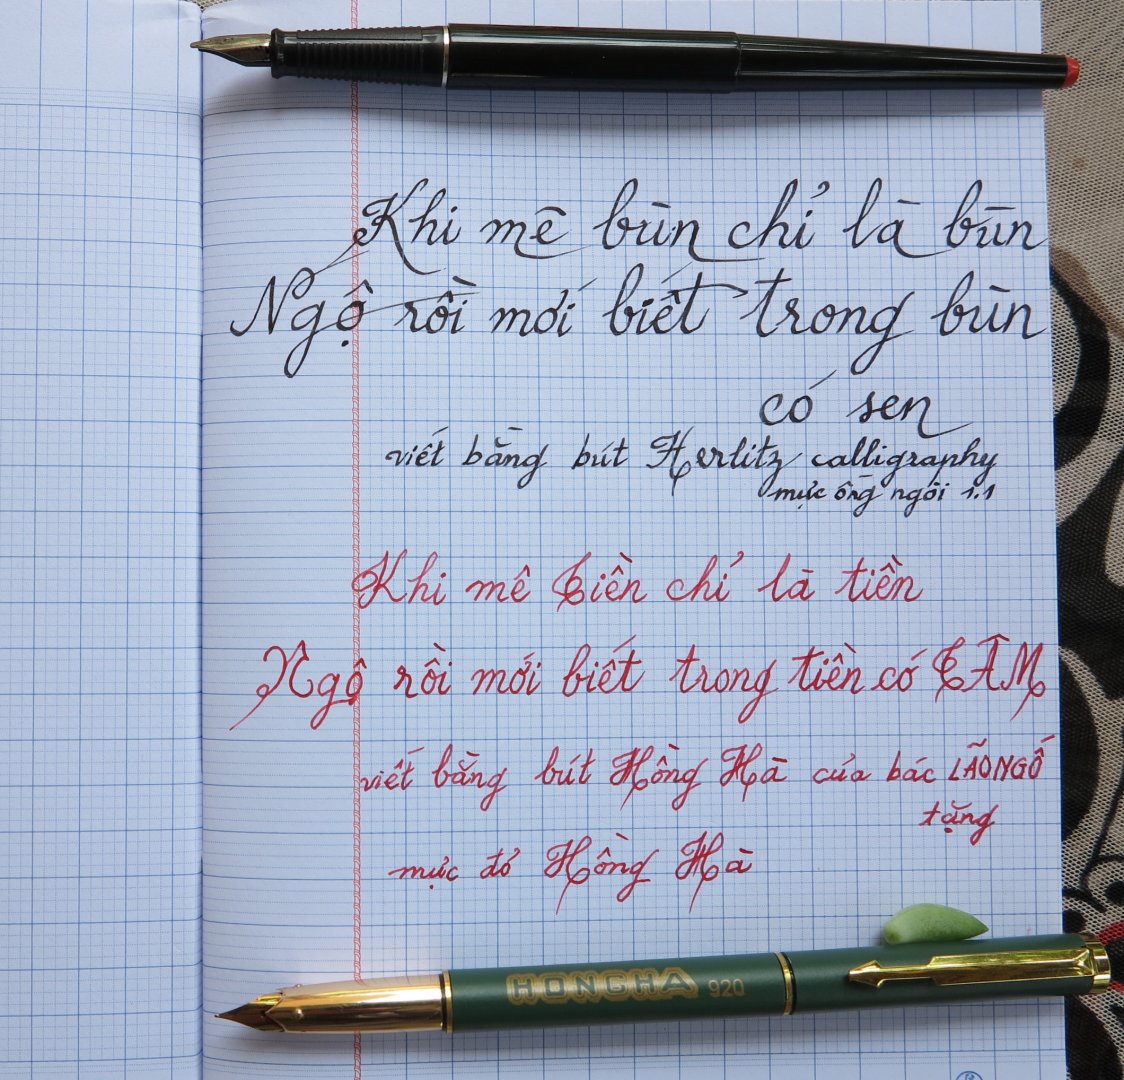 Khi mê bùn chỉ là bùn
Ngộ rồi mới biết trong bùn
có sen
viết bằng bút Herlitz calligraphy
mực ống ngòi 1.1
Khi mê tiền chỉ là tiền
Ngộ rồi mới biết trong tiền có TÂM
viết bằng bút Hồng Hà của bác LÃONGỐ
tặng
mực đỏ Hồng Hà
HONGHA 920